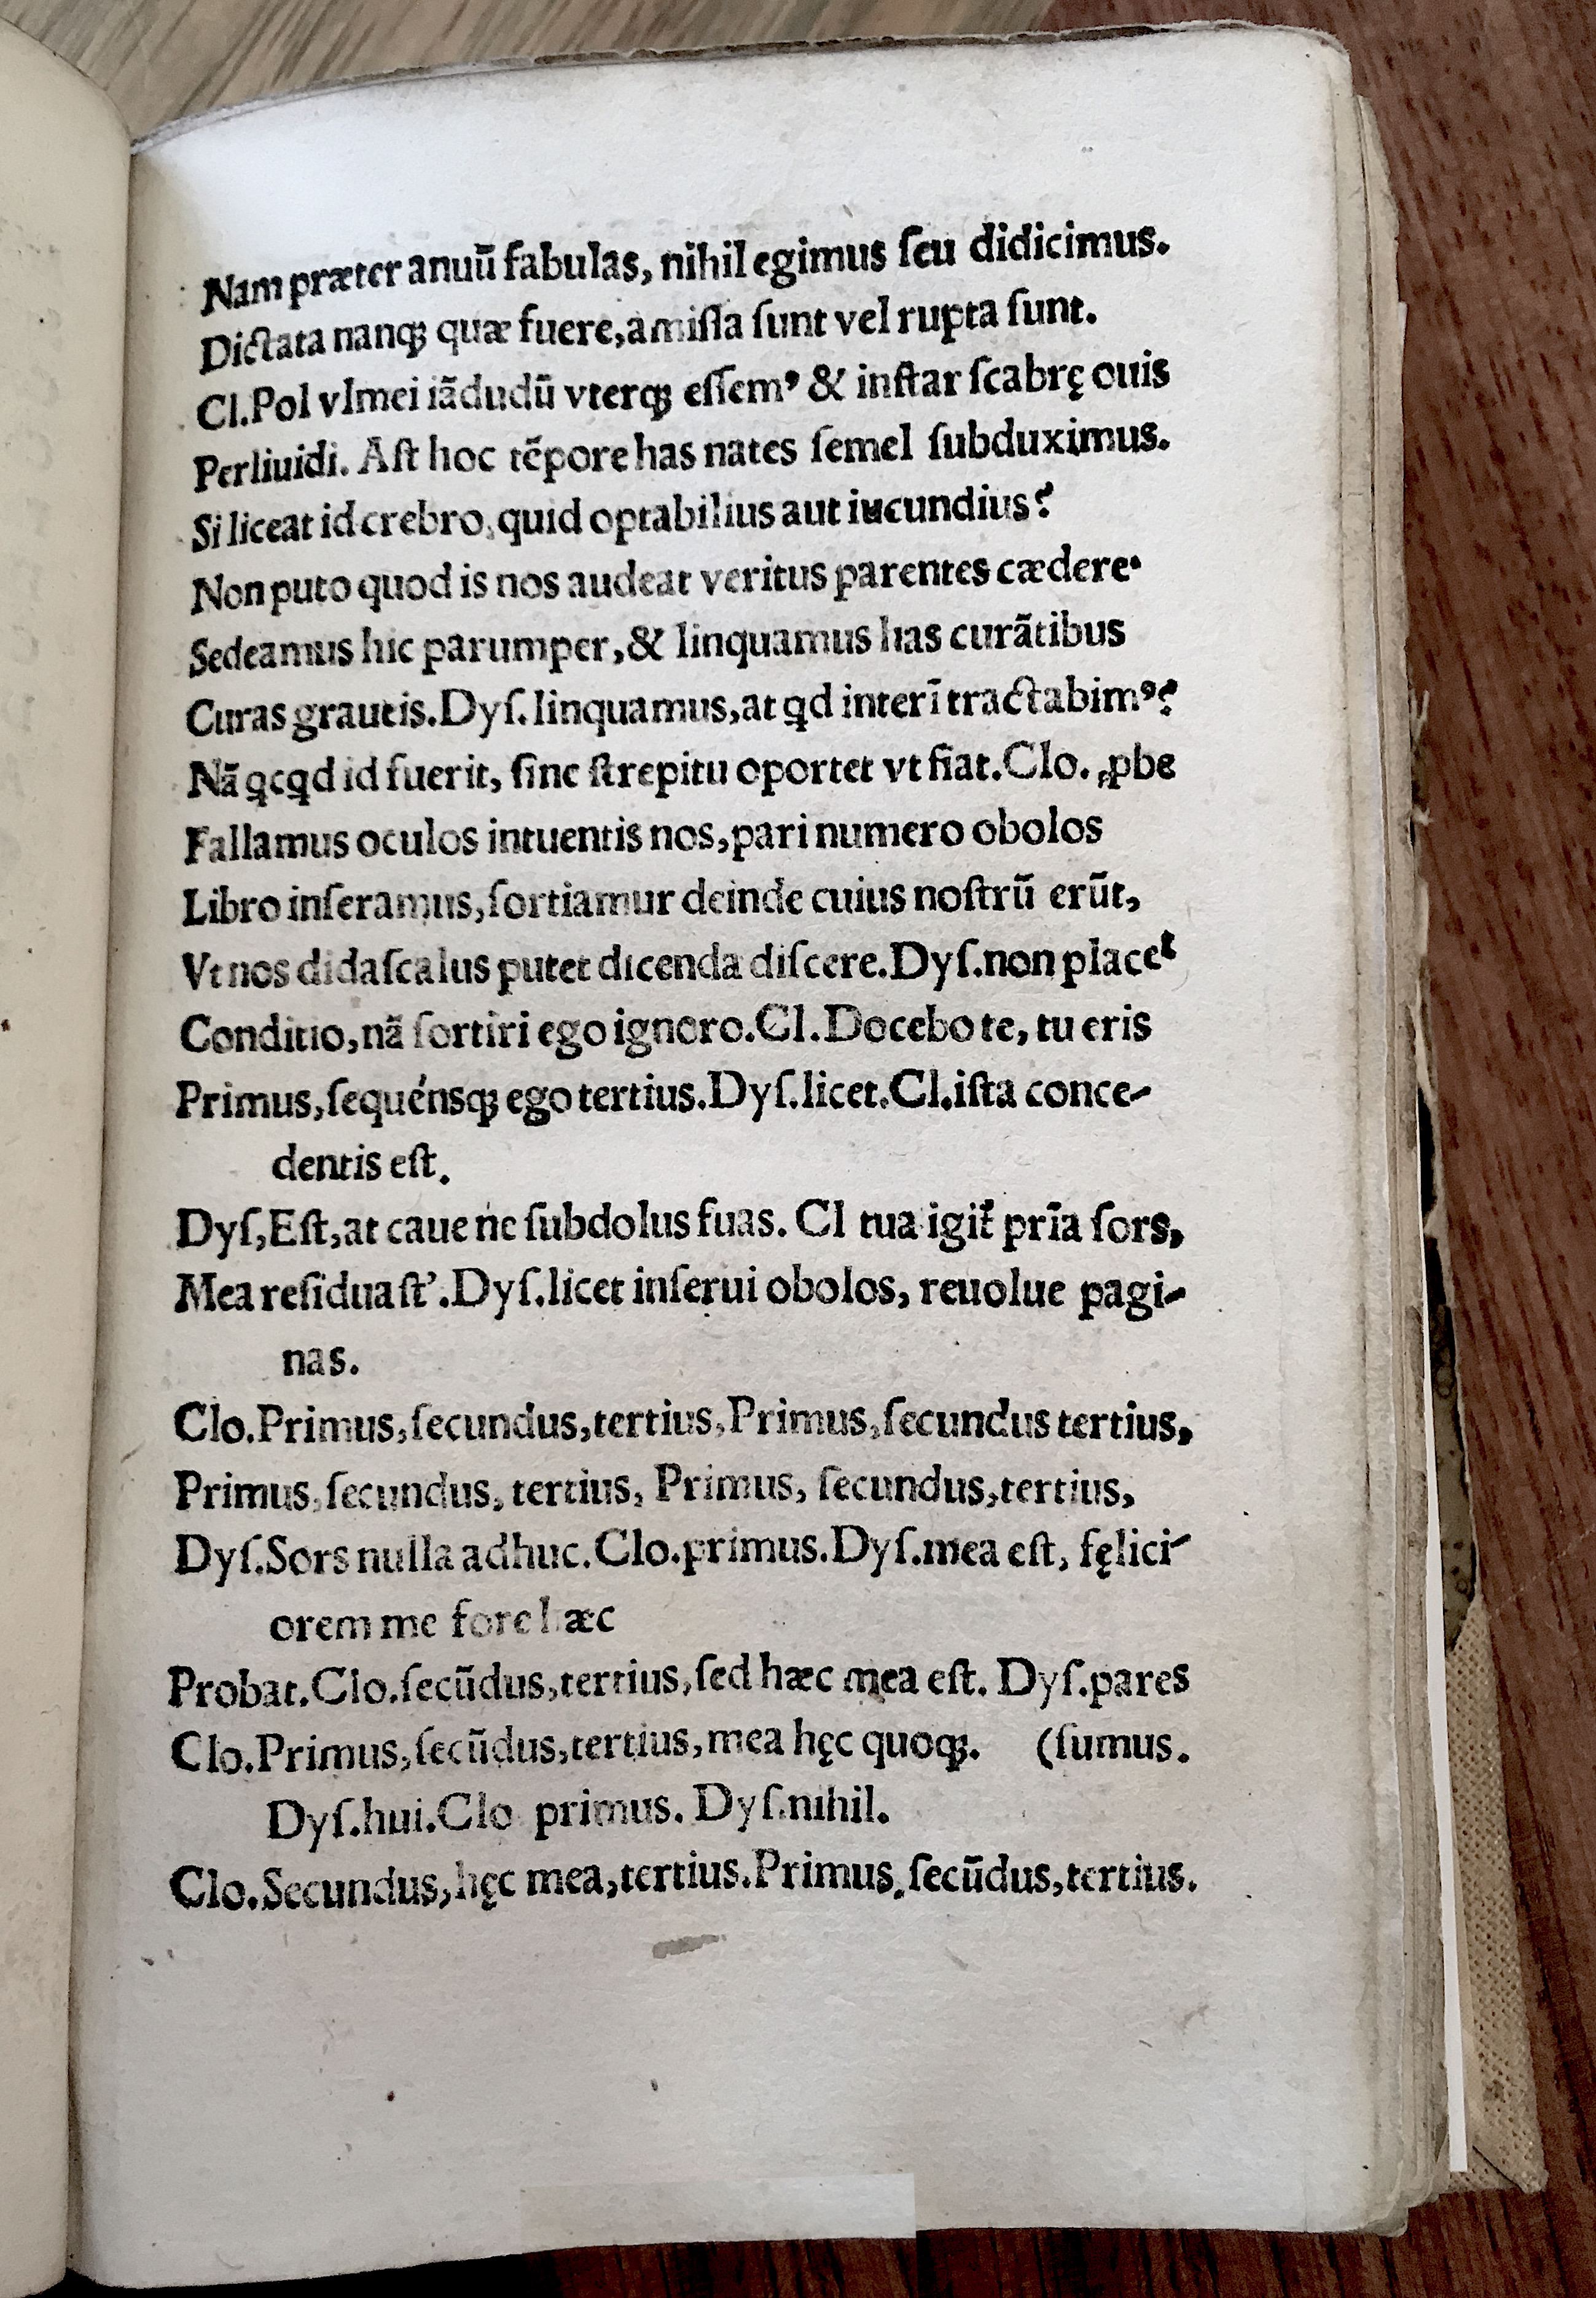 Nam præter anuū fabulas, nihil egimus ſeu didicimus.
Dictata nanq; quæ fuere,amiſſa ſunt vel rupta ſunt.
Cl.Pol vlmei iādudū vterq; eſſemꝰ & inſtar ſcabrę ouis
Perliuidi. Aſt hoc tēpore has nates ſemel ſubduximus.
Si liceat id crebro,quid optabilius aut iucundius?
Non puto quod is nos audeat veritus parentes cædere.
Sedeamus hic parumper,& linquamus has curātibus
Curas grauẽis.Dyſ.linquamus,at ꝗd interī tractabimꝰ?
Nā ꝗcꝗd id fuerit, ſine ſtrepitu oportet vt fiat.Clo. ꝓbe
Fallamus oculos intuentis nos,pari numero obolos
Libro inſeramus,ſortiamur deinde cuius noſtrū erūt,
Vt nos didaſcalus putet dicenda diſcere.Dyſ.non placet
Conditio,nā ſortiri ego ignoro.Cl.Docebo te, tu eris
Primus,ſequénsq; ego tertius.Dyſ.licet.Cl.iſta conce-
dentis eſt.
Dyſ,Eſt,at caue ne ſubdolus fuas. Cl tua igit̄ prīa ſors,
Mea reſidua ſt'.Dyſ.licet inſerui obolos, reuolue pagi-
nas.
Clo.Primus,ſecundus,tertius,Primus,ſecundus tertius,
Primus,ſecundus, tertius, Primus, ſecundus,tertius,
Dyſ.Sors nulla adhuc.Clo.primus.Dyſ.mea eſt, fęlici-
orem me fore hæc
Probat.Clo.ſecūdus,tertius,ſed hæc mea eſt. Dyſ.pares
Clo.Primus,ſecūdus,tertius,mea hęc quoq;. (ſumus.
Dyſ.hui.Clo primus. Dyſ.nihil.
Clo.Secundus,hęc mea,tertius.Primus,ſecūdus,tertius.